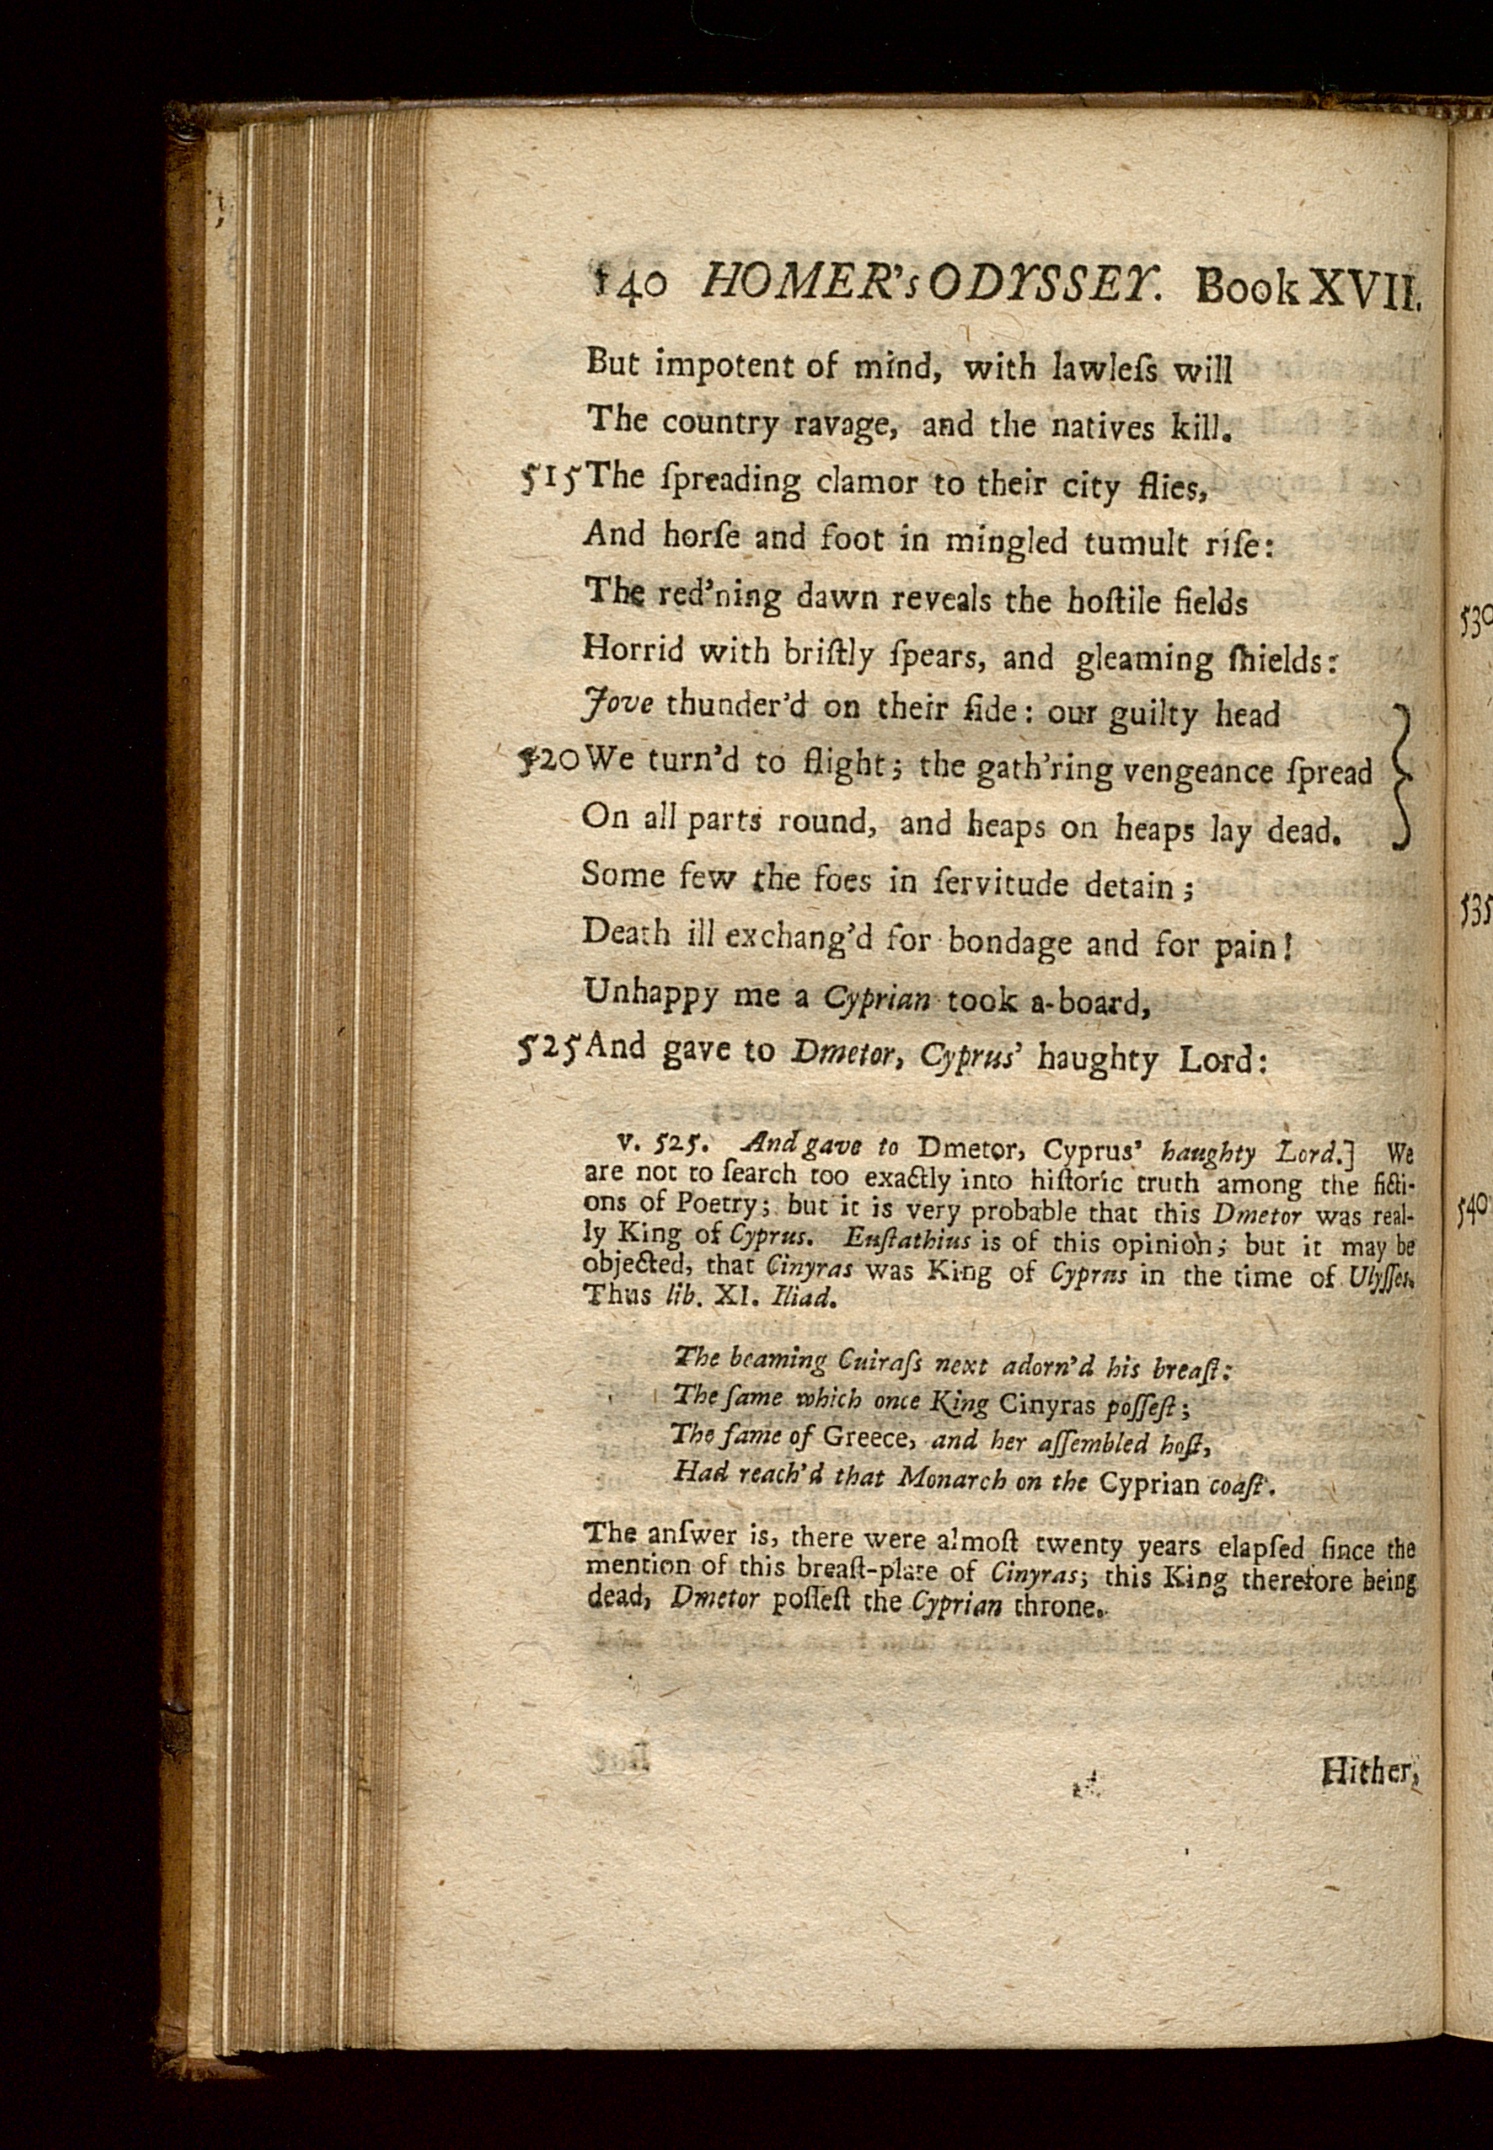 140 HOMER's ODYSSEY. Book XVII.
But impotent of mind, with lawleſs will
The country ravage, and the natives kill.
515 The ſpreading clamor to their city flies,
And horſe and foot in mingled tumult riſe:
The red'ning dawn reveals the hoſtile fields
Horrid with briſtly ſpears, and gleaming ſhields:
Jove thunder'd on their ſide: our guilty head
520 We turn'd to flight; the gath'ring vengeance ſpread
On all parts round, and heaps on heaps lay dead.
Some few the foes in ſervitude detain;
Death ill exchang'd for bondage and for pain!
Unhappy me a Cyprian took a-board,
525 And gave to Dmetor, Cyprus' haughty Lord:
v. 525. And gave to Dmetor, Cyprus' haughty Lord.] We
are not to ſearch too exactly into hiſtoric truth among the ficti-
ons of Poetry; but it is very probable that this Dmetor was real-
ly King of Cyprus. Euſtathius is of this opinion; but it may be
objected, that Cinyras was King of Cyprus in the time of Ulyſſes.
Thus lib. XI. Iliad.
The beaming Cuiraſs next adorn'd his breaſt:
The ſame which once King Cinyras poſſeſt;
The fame of Greece, and her aſſembled hoſt,
Had reach'd that Monarch on the Cyprian coaſt.
The anſwer is, there were almoſt twenty years elapſed ſince the
mention of this breaſt-plate of Cinyras; this King therefore being
dead, Dmetor poſſeſt the Cyprian throne.
Hither,
530
535
540